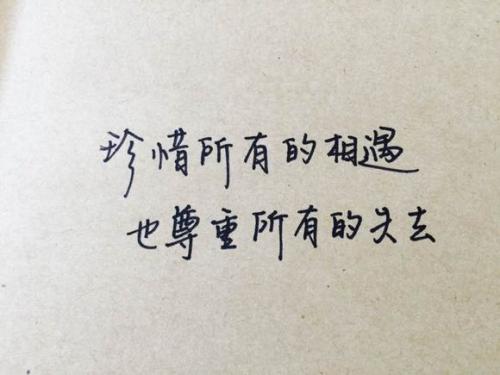 珍惜所有的相遇
也尊重所有的失去